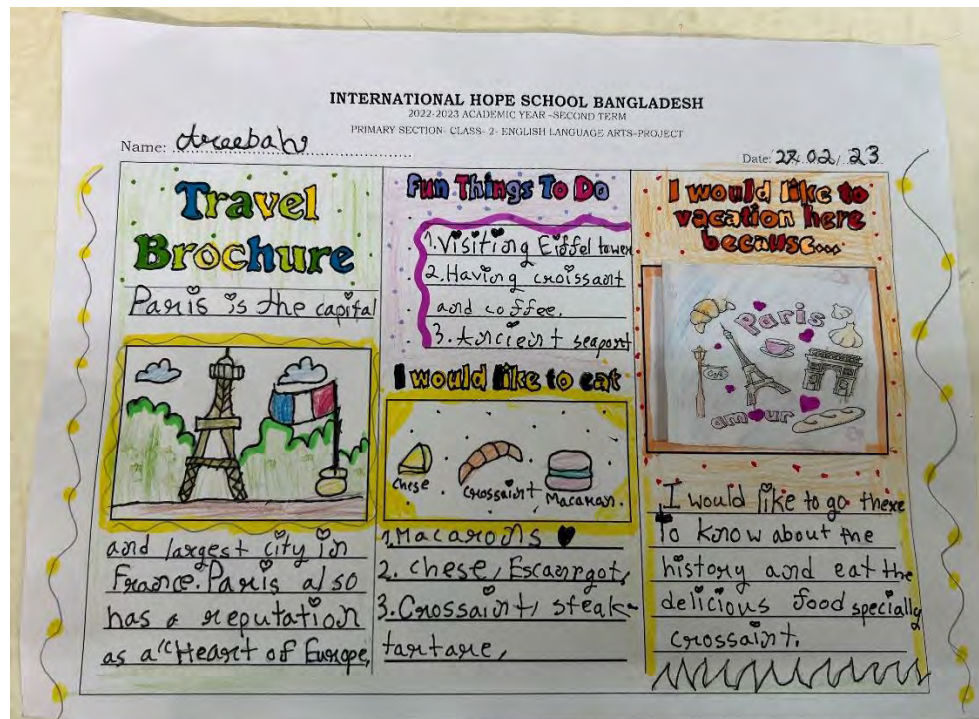 INTERNATIONAL HOPE SCHOOL BANGLADESH
2022-2023 ACADEMIC YEAR -SECOND TERM
PRIMARY SECTION- CLASS- 2- ENGLISH LANGUAGE ARTS-PROJECT
Name: Areebah
Date: 28.02/.23
Travel
Brochure
Paris is the capital
and largest city in
France. Paris also
has a reputation
as a "Heart of Europe,
Fun Things To Do
1. Visiting Eiffel tower
2. Having croissant
and coffee.
3. Ancient seaport
I would like to eat
chese
Crossaint
Macaran.
1. Macarons
2. chese, Escanrgot,
3. Crossaint, steak-
tartare,
I would like to
vacation here
because...
Paris
Café
amour
I would like to go there
To know about the
history and eat the
delicious food specially
crossaint.